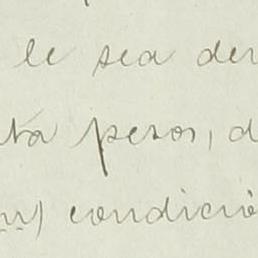 le sea der
ta pesos, d
condició